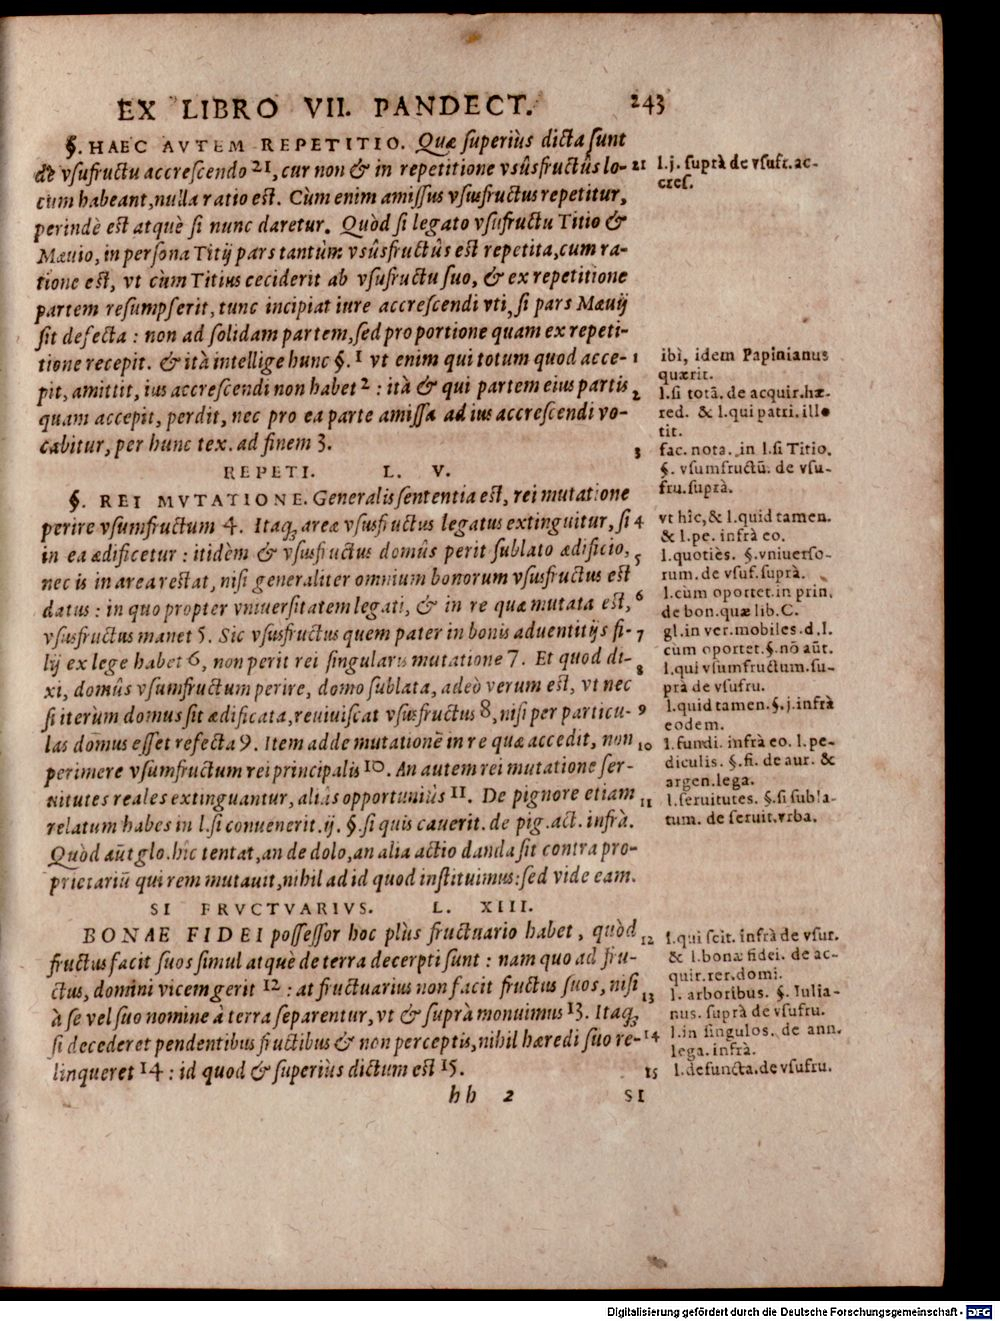 EX LIBRO VII. PANDECT. 243
§. HAEC AVTEM REPETITIO. Quæ superiùs dicta sunt
de vsufructu accrescendo 21, cur non & in repetitione vsûsfructûs lo-
cum habeant, nulla ratio est. Cùm enim amissus vsusfructus repetitur,
perindè est atquè si nunc daretur. Quòd si legato vsufructu Titio &
Mæuio, in persona Titij pars tantùm vsûsfructûs est repetita, cum ra-
tione est, vt cùm Titius ceciderit ab vsufructu suo, & ex repetitione
partem resumpserit, tunc incipiat iure accrescendi vti, si pars Mæuij
sit defecta : non ad solidam partem, sed pro portione quam ex repeti-
tione recepit. & ità intellige hunc §. 1 vt enim qui totum quod acce-
pit, amittit, ius accrescendi non habet 2 : ità & qui partem eius partis
quam accepit, perdit, nec pro ea parte amissa ad ius accrescendi vo-
cabitur, per hunc tex. ad finem 3.
REPETI. L. V.
§. REI MVTATIONE. Generalis sententia est, rei mutatione
perire vsumfructum 4. Itaq; areæ vsusfructus legatus extinguitur, si
in ea ædificetur : itidèm & vsusfructus domûs perit sublato ædificio,
nec is in area restat, nisi generaliter omnium bonorum vsusfructus est
datus : in quo propter vniuersitatem legati, & in re quæ mutata est,
vsusfructus manet 5. Sic vsusfructus quem pater in bonis aduentitijs fi-
lij ex lege habet 6, non perit rei singularis mutatione 7. Et quod di-
xi, domûs vsumfructum perire, domo sublata, adeò verum est, vt nec
si iterùm domus sit ædificata, reuiuiscat vsusfructus 8, nisi per particu-
las domus esset refecta 9. Item adde mutationē in re quæ accedit, non
perimere vsumfructum rei principalis 10. An autem rei mutatione ser-
uitutes reales extinguantur, aliàs opportuniùs 11. De pignore etiam
relatum habes in l. si conuenerit. ij. §. si quis cauerit. de pig. act. infrà.
Quòd aūt glo. hîc tentat, an de dolo, an alia actio danda sit contra pro-
prietariū qui rem mutauit, nihil ad id quod instituimus: sed vide eam.
SI FRVCTVARIVS. L. XIII.
BONAE FIDEI possessor hoc plùs fructuario habet, quòd
fructus facit suos simul atquè de terra decerpti sunt : nam quo ad fru-
ctus, domini vicem gerit 12 : at fructuarius non facit fructus suos, nisi
à se vel suo nomine à terra separentur, vt & suprà monuimus 13. Itaq;
si decederet pendentibus fructibus & non perceptis, nihil hæredi suo re-
linqueret 14 : id quod & superiùs dictum est 15.
hh 2 SI
21 l.j. suprà de vsufr. ac-
cres.
1 ibi, idem Papinianus
quærit.
2 l.si totā. de acquir. hæ-
red. & l.qui patri. ille
tit.
3 fac. nota. in l.si Titio.
§. vsumfructū. de vsu-
fru. suprà.
4 vt hîc, & l.quid tamen.
& l.pe. infrà eo.
5 l.quotiès. §.vniuerso-
rum. de vsuf. suprà.
6 l.cùm oportet. in prin.
de bon. quæ lib. C.
7 gl.in ver.mobiles.d.l.
cùm oportet.§.nō aūt.
8 l.qui vsumfructum. su-
prà de vsufru.
9 l.quid tamen.§.j.infrà
eodem.
10 l.fundi. infrà eo. l.pe-
diculis. §.fi. de aur. &
argen. lega.
11 l.seruitutes. §.si subla-
tum. de seruit. vrba.
12 l.qui scit. infrà de vsur.
& l.bonæ fidei. de ac-
quir. rer. domi.
13 l. arboribus. §. Iulia-
nus. suprà de vsufru.
14 l.in singulos. de ann.
lega. infrà.
15 l.defuncta. de vsufru.
Digitalisierung gefördert durch die Deutsche Forschungsgemeinschaft - DFG